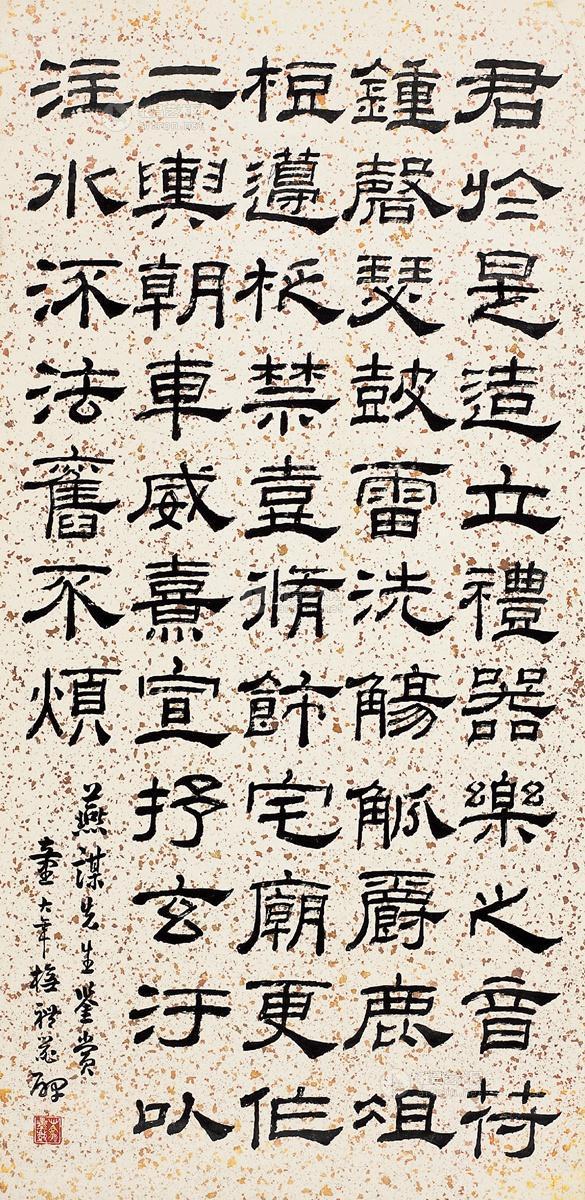 君於是造立禮器樂之音苻
鍾磬瑟皷雷洗觴觚爵鹿俎
梪籩柉禁壺脩飾宅廟更作
二輿朝車威熹宣抒玄汙以
注水流法舊不煩
燕謀先生鑒賞
童大年橅禮器碑